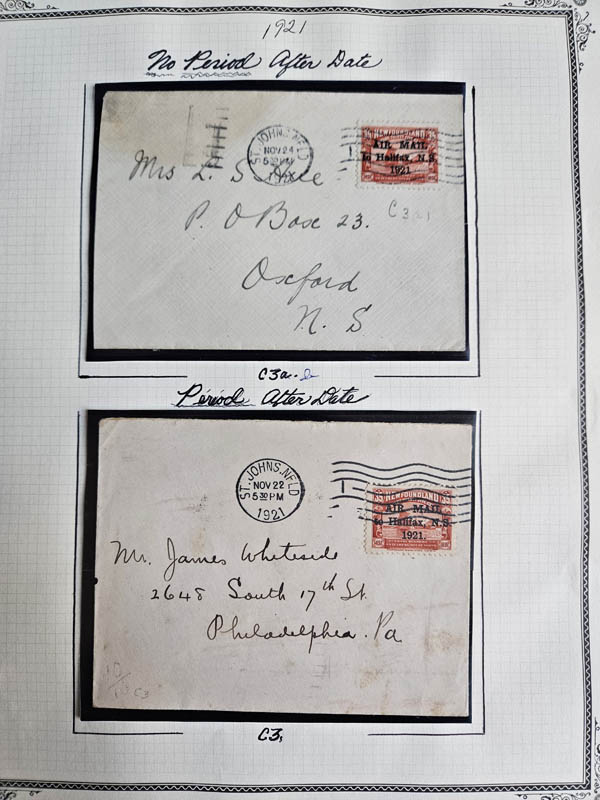 1921
No Period After Date
ST. JOHNS. NFLD
NOV 24
5 30 PM
NEWFOUNDLAND
AIR MAIL
to Halifax, N.S.
1921
Mrs L. S
P. O Box 23.
Oxford
N. S
C3a.
Period After Date
ST. JOHNS. NFLD
NOV 22
5 30 PM
1921
35 NEWFOUNDLAND 35
AIR MAIL
to Halifax, N.S.
1921.
Mr. James Whiteside
2648 South 17th St.
Philadelphia. Pa
C3
C3,